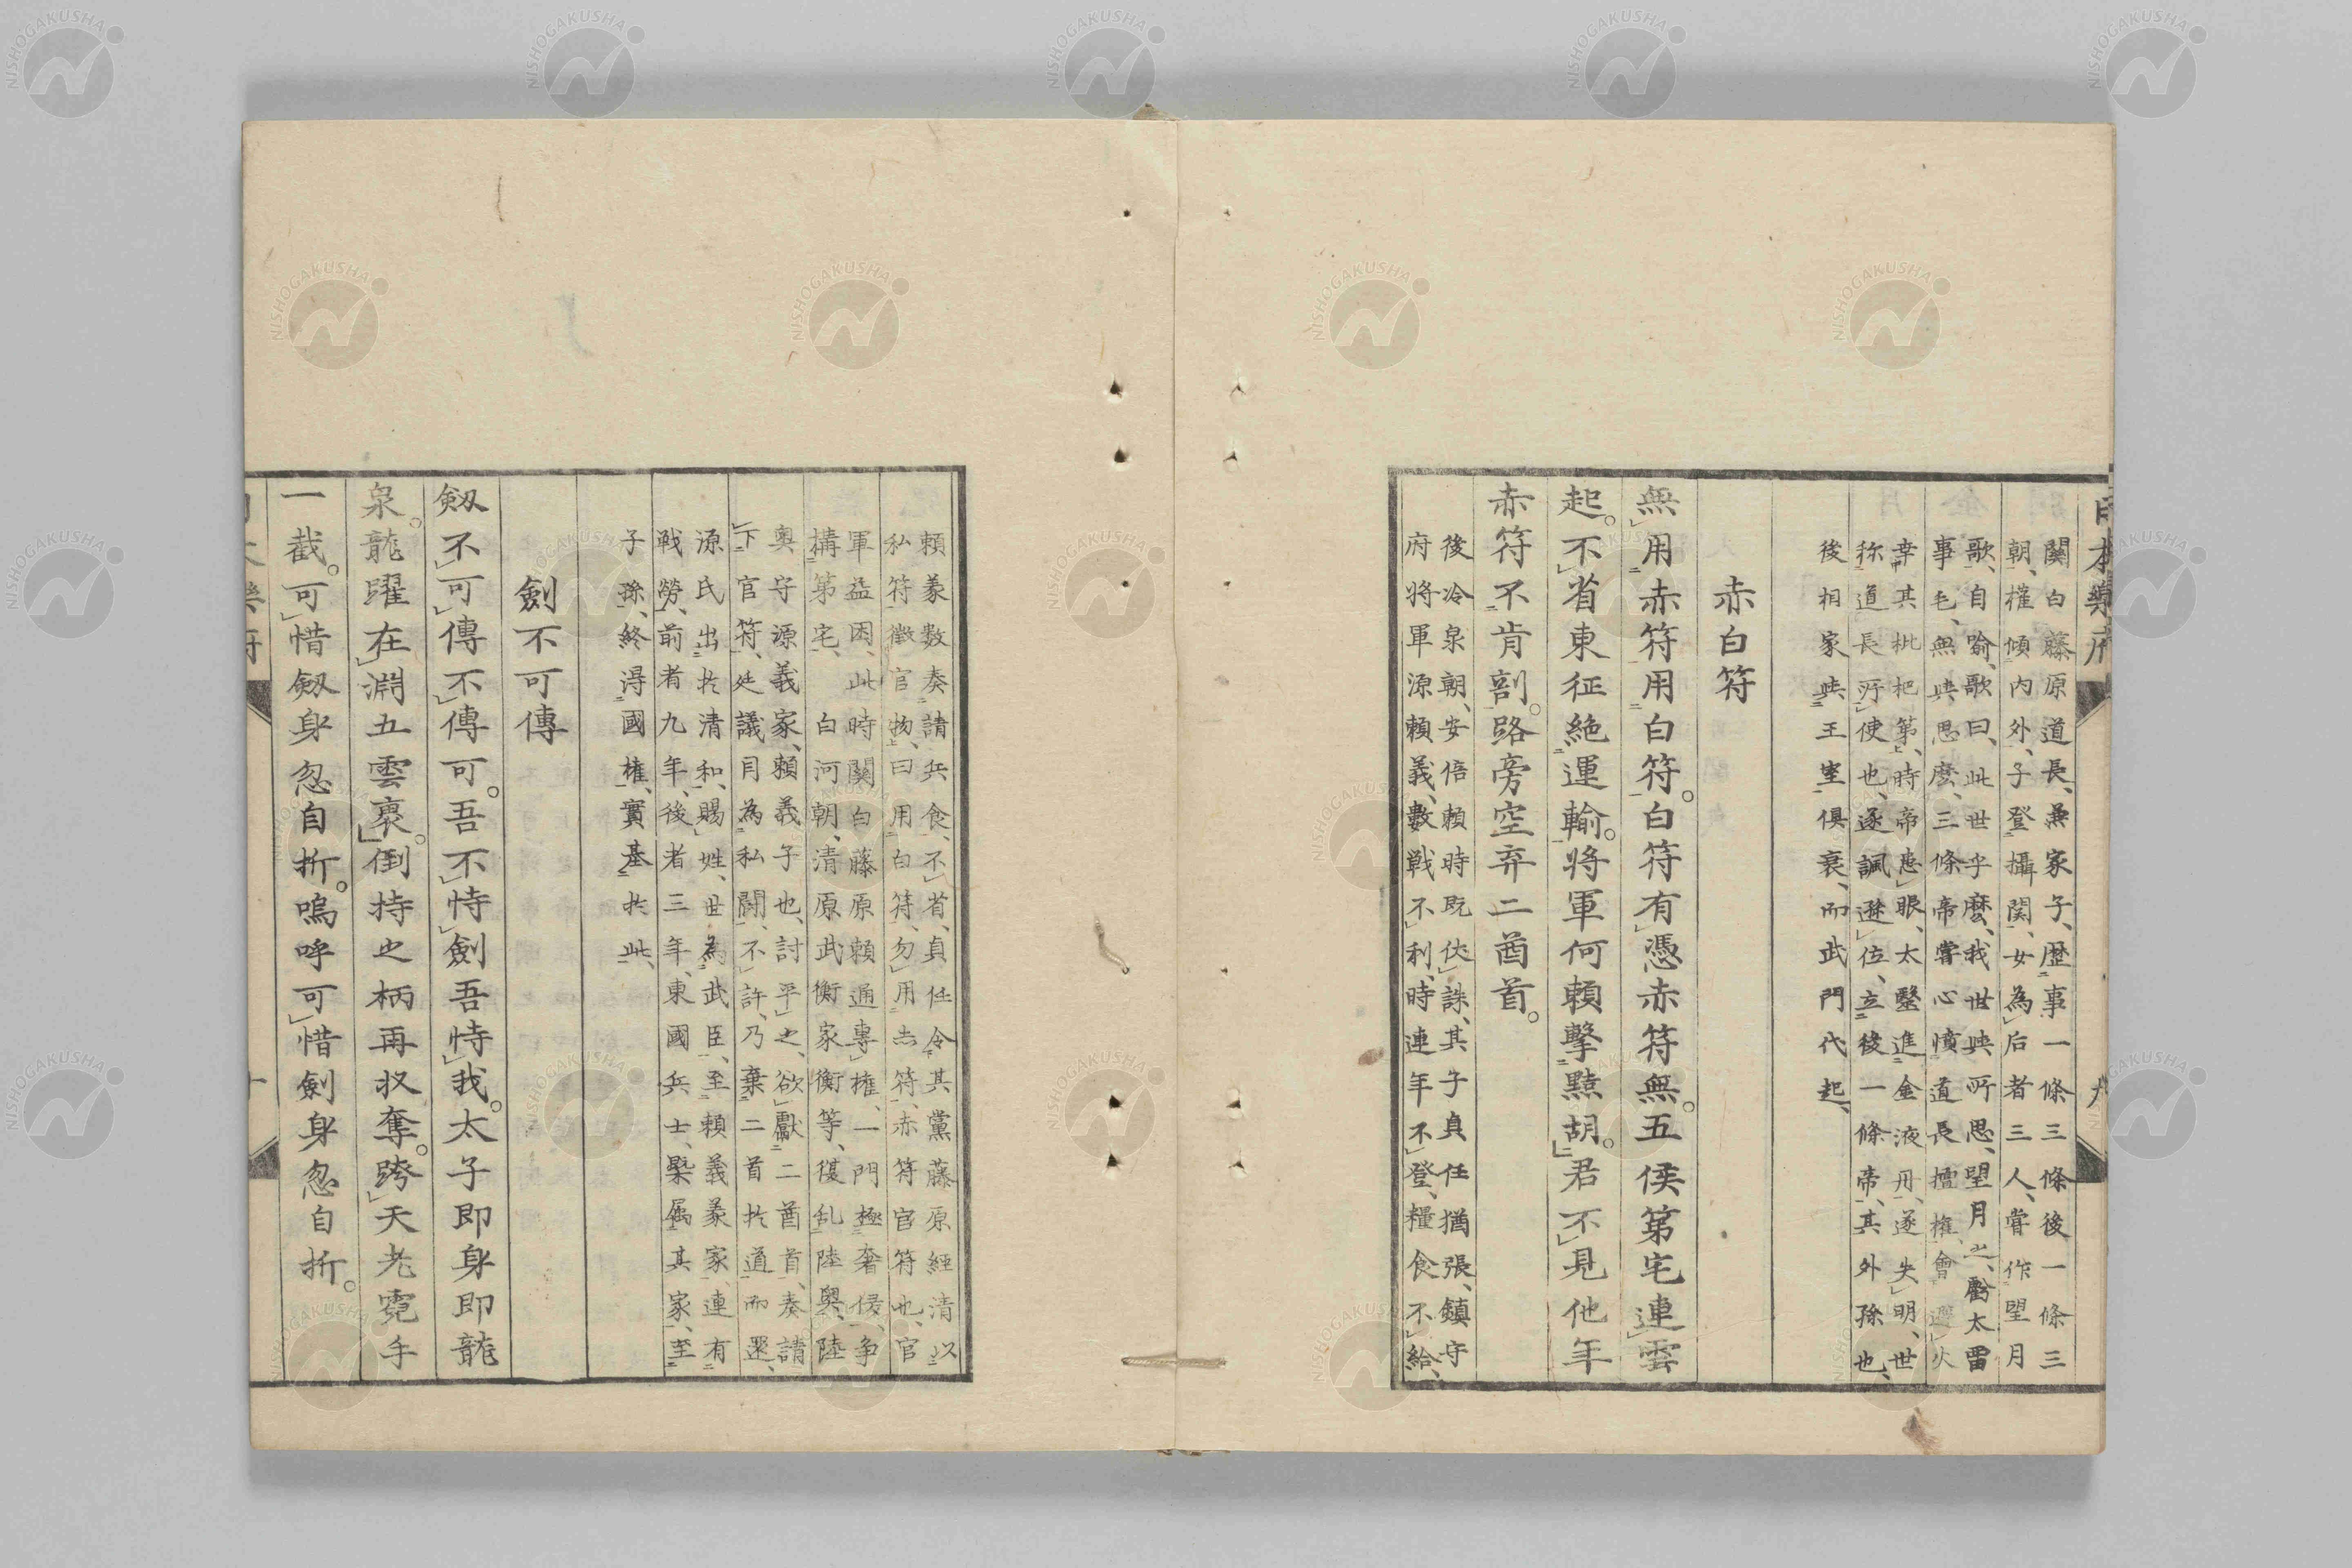 日本樂府
九
關白藤原道長、兼家子、歴事一條三條後一條三
朝、權傾内外、子登攝関、女為后者三人、嘗作望月
歌、自喻、歌曰、此世乎麼、我世與所思、望月之、虧太畱
事毛、無與思麼、三條帝嘗心憤道長擅權、會遷火
幸其枇杷第、時帝患眼、太醫進金液丹、遂失明、世
称道長所使也、遂諷遜位、立後一條帝、其外孫也、
後相家與王室俱衰、而武門代起、
赤白符
無用赤符用白符。白符有憑赤符無。五侯第宅連雲
起。不省東征絶運輸。將軍何賴擊黠胡。君不見他年
赤符不肯割。路旁空弃二酋首。
後冷泉朝、安倍賴時既伏誅、其子貞任猶張、鎮守
府將軍源賴義、數戦不利、時連年不登、糧食不給、
賴義數奏請兵食、不省、貞任令其黨藤原經清以
私符徵官物、曰、用白符、勿用赤符、赤符官符也、官
軍益困、此時關白藤原賴通專權、一門極奢侈、争
構第宅、白河朝、清原武衡家衡等、復乱陸奥、陸
奥守源義家、賴義子也、討平之、欲獻二酋首、奏請
下官符、廷議目為私鬪、不許、乃棄二首扵道而還、
源氏出扵清和、賜姓、世為武臣、至賴義義家、連有
戦勞、前者九年、後者三年、東國兵士、槩属其家、至
子孫、終得國權、實基扵此、
劍不可傳
劔不可傳不傳可。吾不恃劍吾恃我。太子即身即龍
泉。龍躍在淵五雲裏。倒持之柄再収奪。跨天老霓手
一截。可惜劔身忽自折。嗚呼可惜劍身忽自折。
日本樂府
十